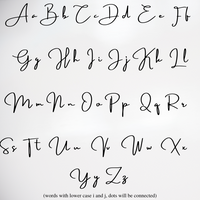 Aa Bb Cc Dd Ee Ff
Gg Hh Ii Jj Kk Ll
Mm Nn Oo Pp Qq Rr
Ss Tt Uu Vv Ww Xx
Yy Zz
(words with lower case i and j, dots will be connected)